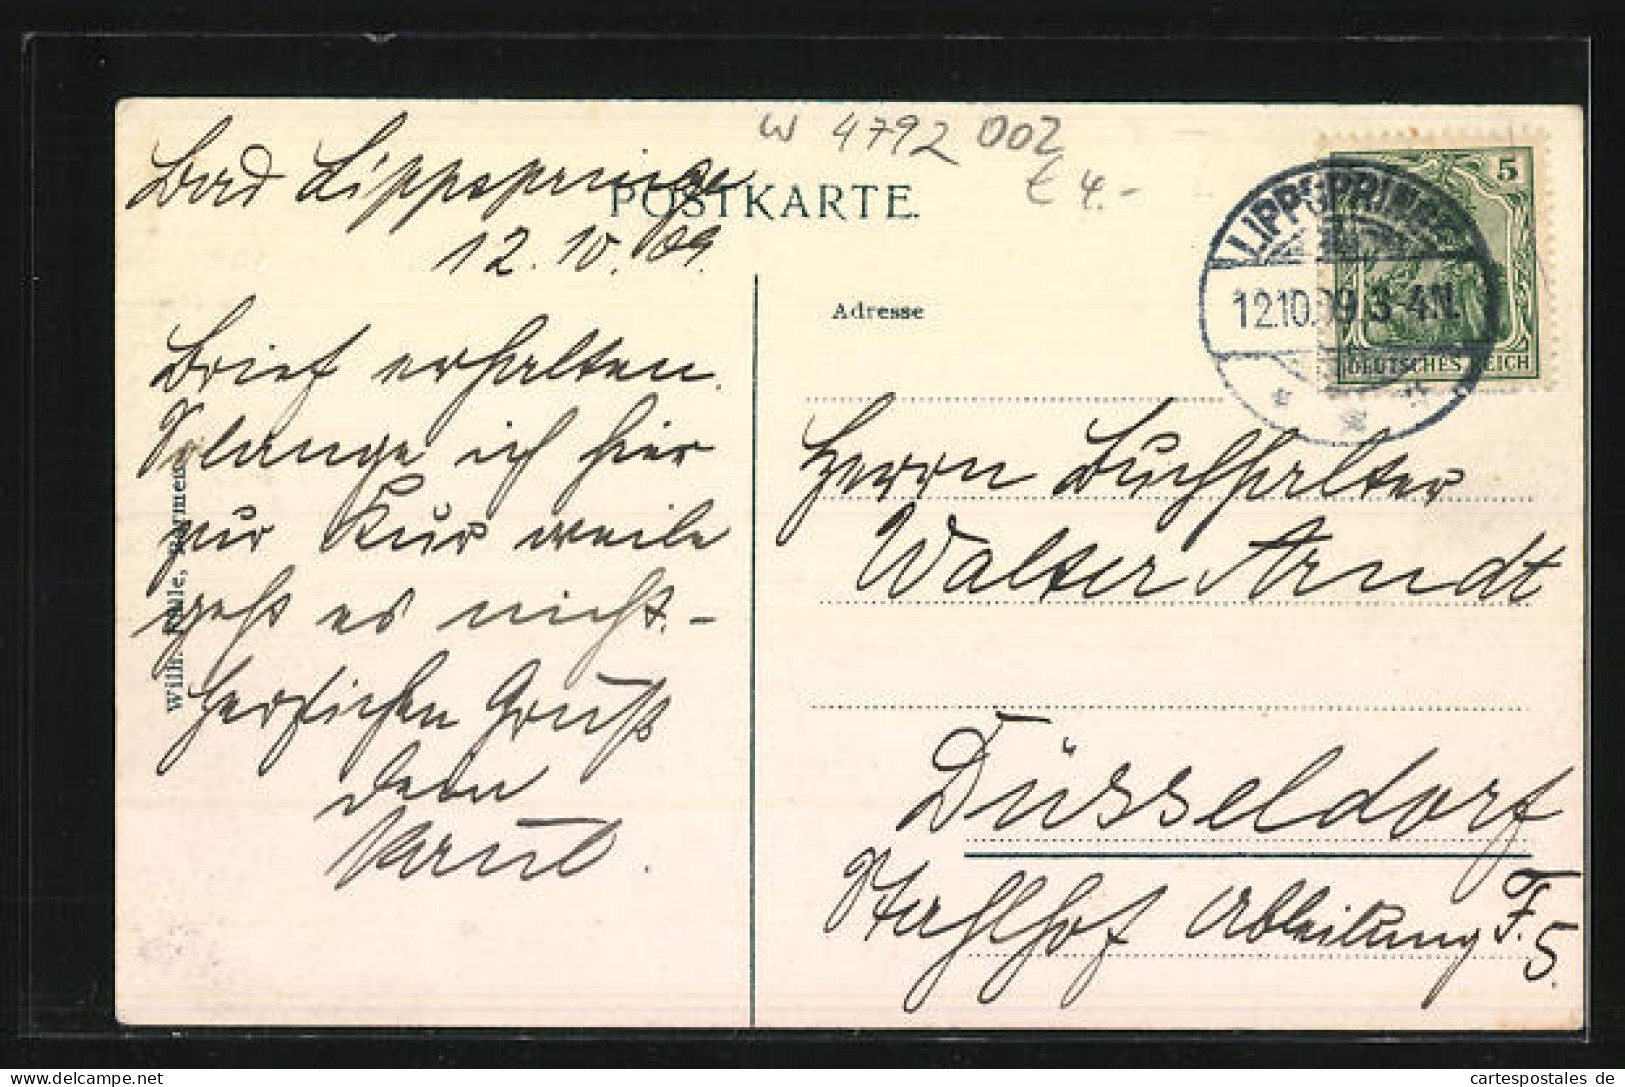 W 4792 002
€ 4.-
POSTKARTE.
Bad Lippspringe
12.10.09.
Brief erhalten.
Solange ich hier
zur Kur weile
geht es nicht.-
Herzlichen Gruß
Dein
Paul.
Wilh. Fülle, Barmen
Adresse
LIPPSPRINGE
12.10.09.3-4N.
5
DEUTSCHES REICH
Herrn Buchhalter
Walter Arndt
Düsseldorf
Stahlhof Abteilung F.5.
cartespostales de